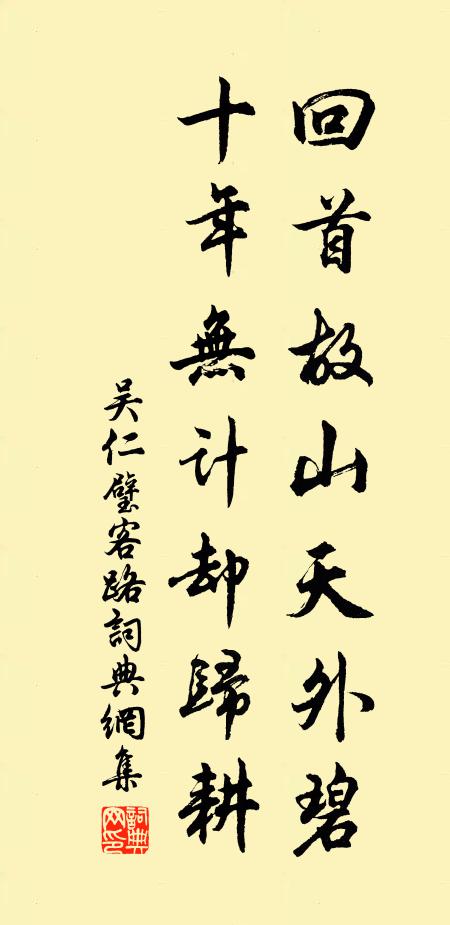 回首故山天外碧
十年無计却歸耕
吴仁璧客路詞典網集
詞典
网印